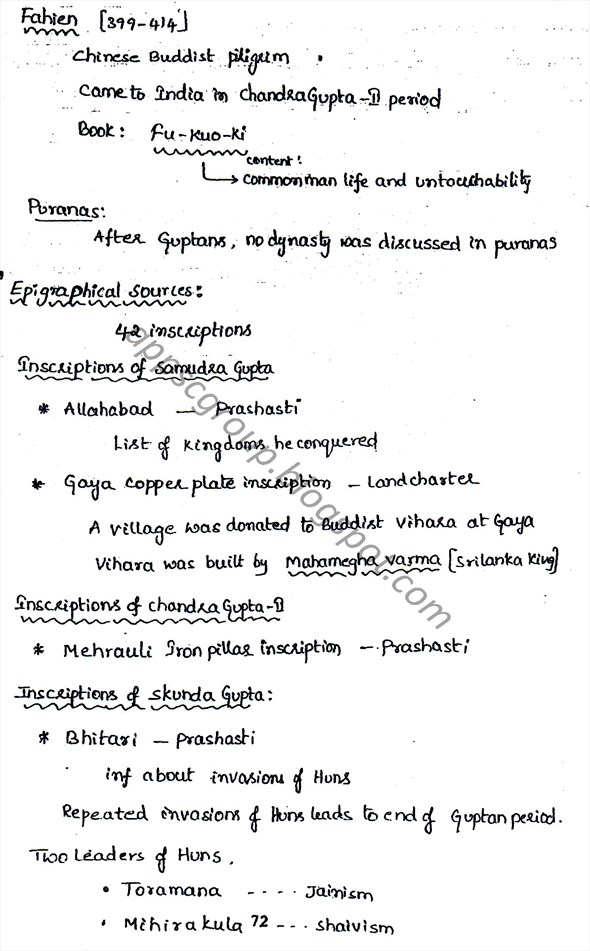 Fahien [399-414]
Chinese Buddist piligrim
Came to India in ChandraGupta-II period
Book: Fu-Kuo-Ki
content:
commonman life and untouchability
Puranas:
After Guptans, no dynasty was discussed in puranas
Epigraphical sources:
42 inscriptions
Inscriptions of Samudra Gupta
* Allahabad — Prashasti
List of kingdoms he conquered
* Gaya copper plate inscription - Landcharter
A village was donated to Buddist vihara at Gaya
Vihara was built by Mahamegha varma [Srilanka King]
Inscriptions of chandra Gupta-II
* Mehrauli Iron pillar inscription - Prashasti
Inscriptions of skunda Gupta:
* Bhitari - prashasti
inf about invasions of Huns
Repeated invasions of Huns leads to end of Guptan period.
Two Leaders of Huns.
• Toramana ---- Jainism
• Mihirakula 72 --- shaivism
appscgroup.blogspot.com